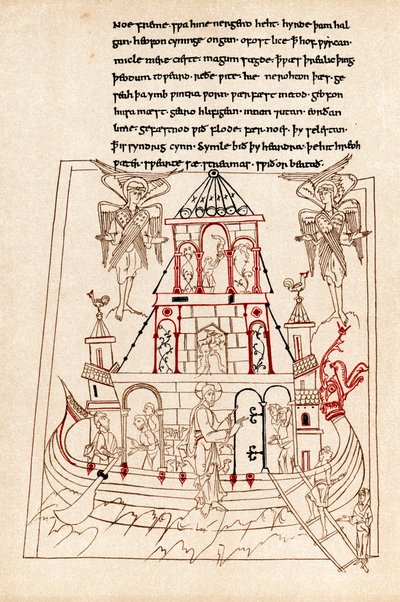 Noe freme. swa hine nergend heht. hyrde þam hal
gan. heofon cyninge ongan. ofost lice ꝥ hof wyrcan.
micle mere cieste. magum sægde. ꝥ wæs þrealic þing.
þeodum toweard. reðe wite. hie ne rohton þæs. ge
seah þa ymb wintra worn. wær fæst metod. geofon
husa mæst. gearo hlifigean. innan ⁊ utan. eorðan
lime. gefæstnod wið flode. fær noes. þy selestan.
ꝥ is syndrig cynn. symle bið þy heardra. þe hit hreoh
wæter. swearte sæ streamas. swiðor beatað.